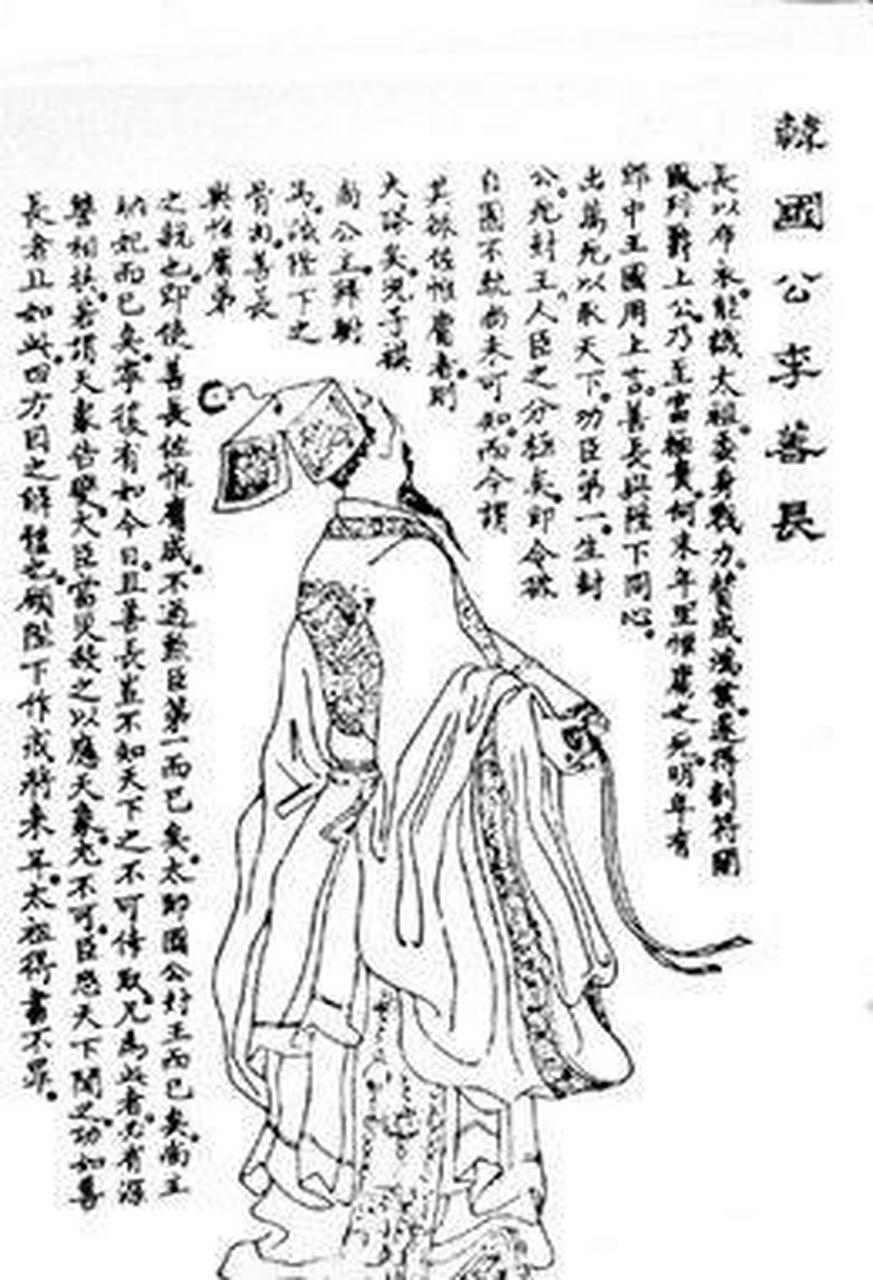 韓國公李善長
長以布衣能識太祖委身戮力贊成鴻業遂得剖符開
國列爵上公乃至富極貴何末年里惟庸之死明年有
郎中王國用上言善長與陛下同心
出萬死以取天下功臣第一生封
公死封王人臣之分極矣即令欲
自圖不軌尚未可知而今謂
其欲佐惟庸者則
大謬矣況子祺
尚公主歸謝
為陛下之
骨肉善長
與惟庸第
之親也即使善長佐惟庸成不過勳臣第一而已矣太師國公封王而已矣尚主
納妃而已矣寧復有加今日且善長豈不知天下之不可倖取凡為此者必有深
讐相挾若謂天象告變大臣當災殺之以應天象尤不可臣恐天下聞之功如善
長者且如此四方因之解體也願陛下作戒將來耳太祖得書不罪